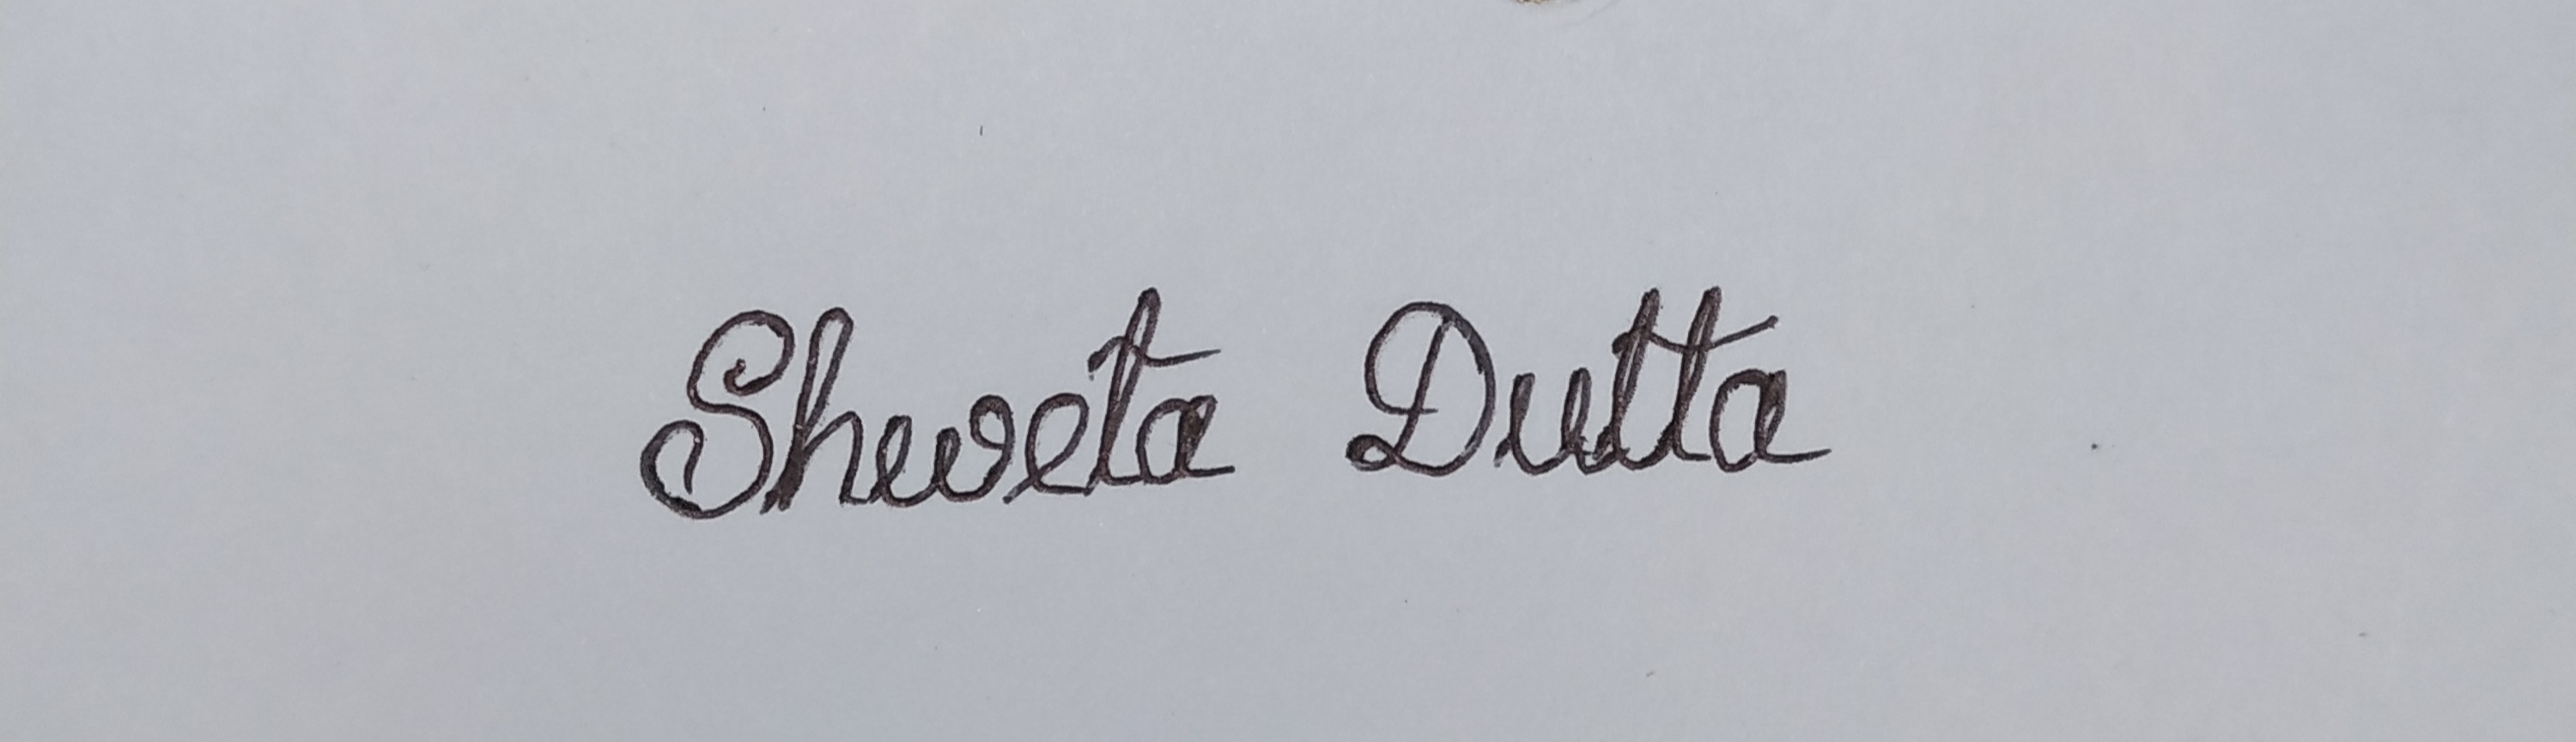 Shweta Dutta